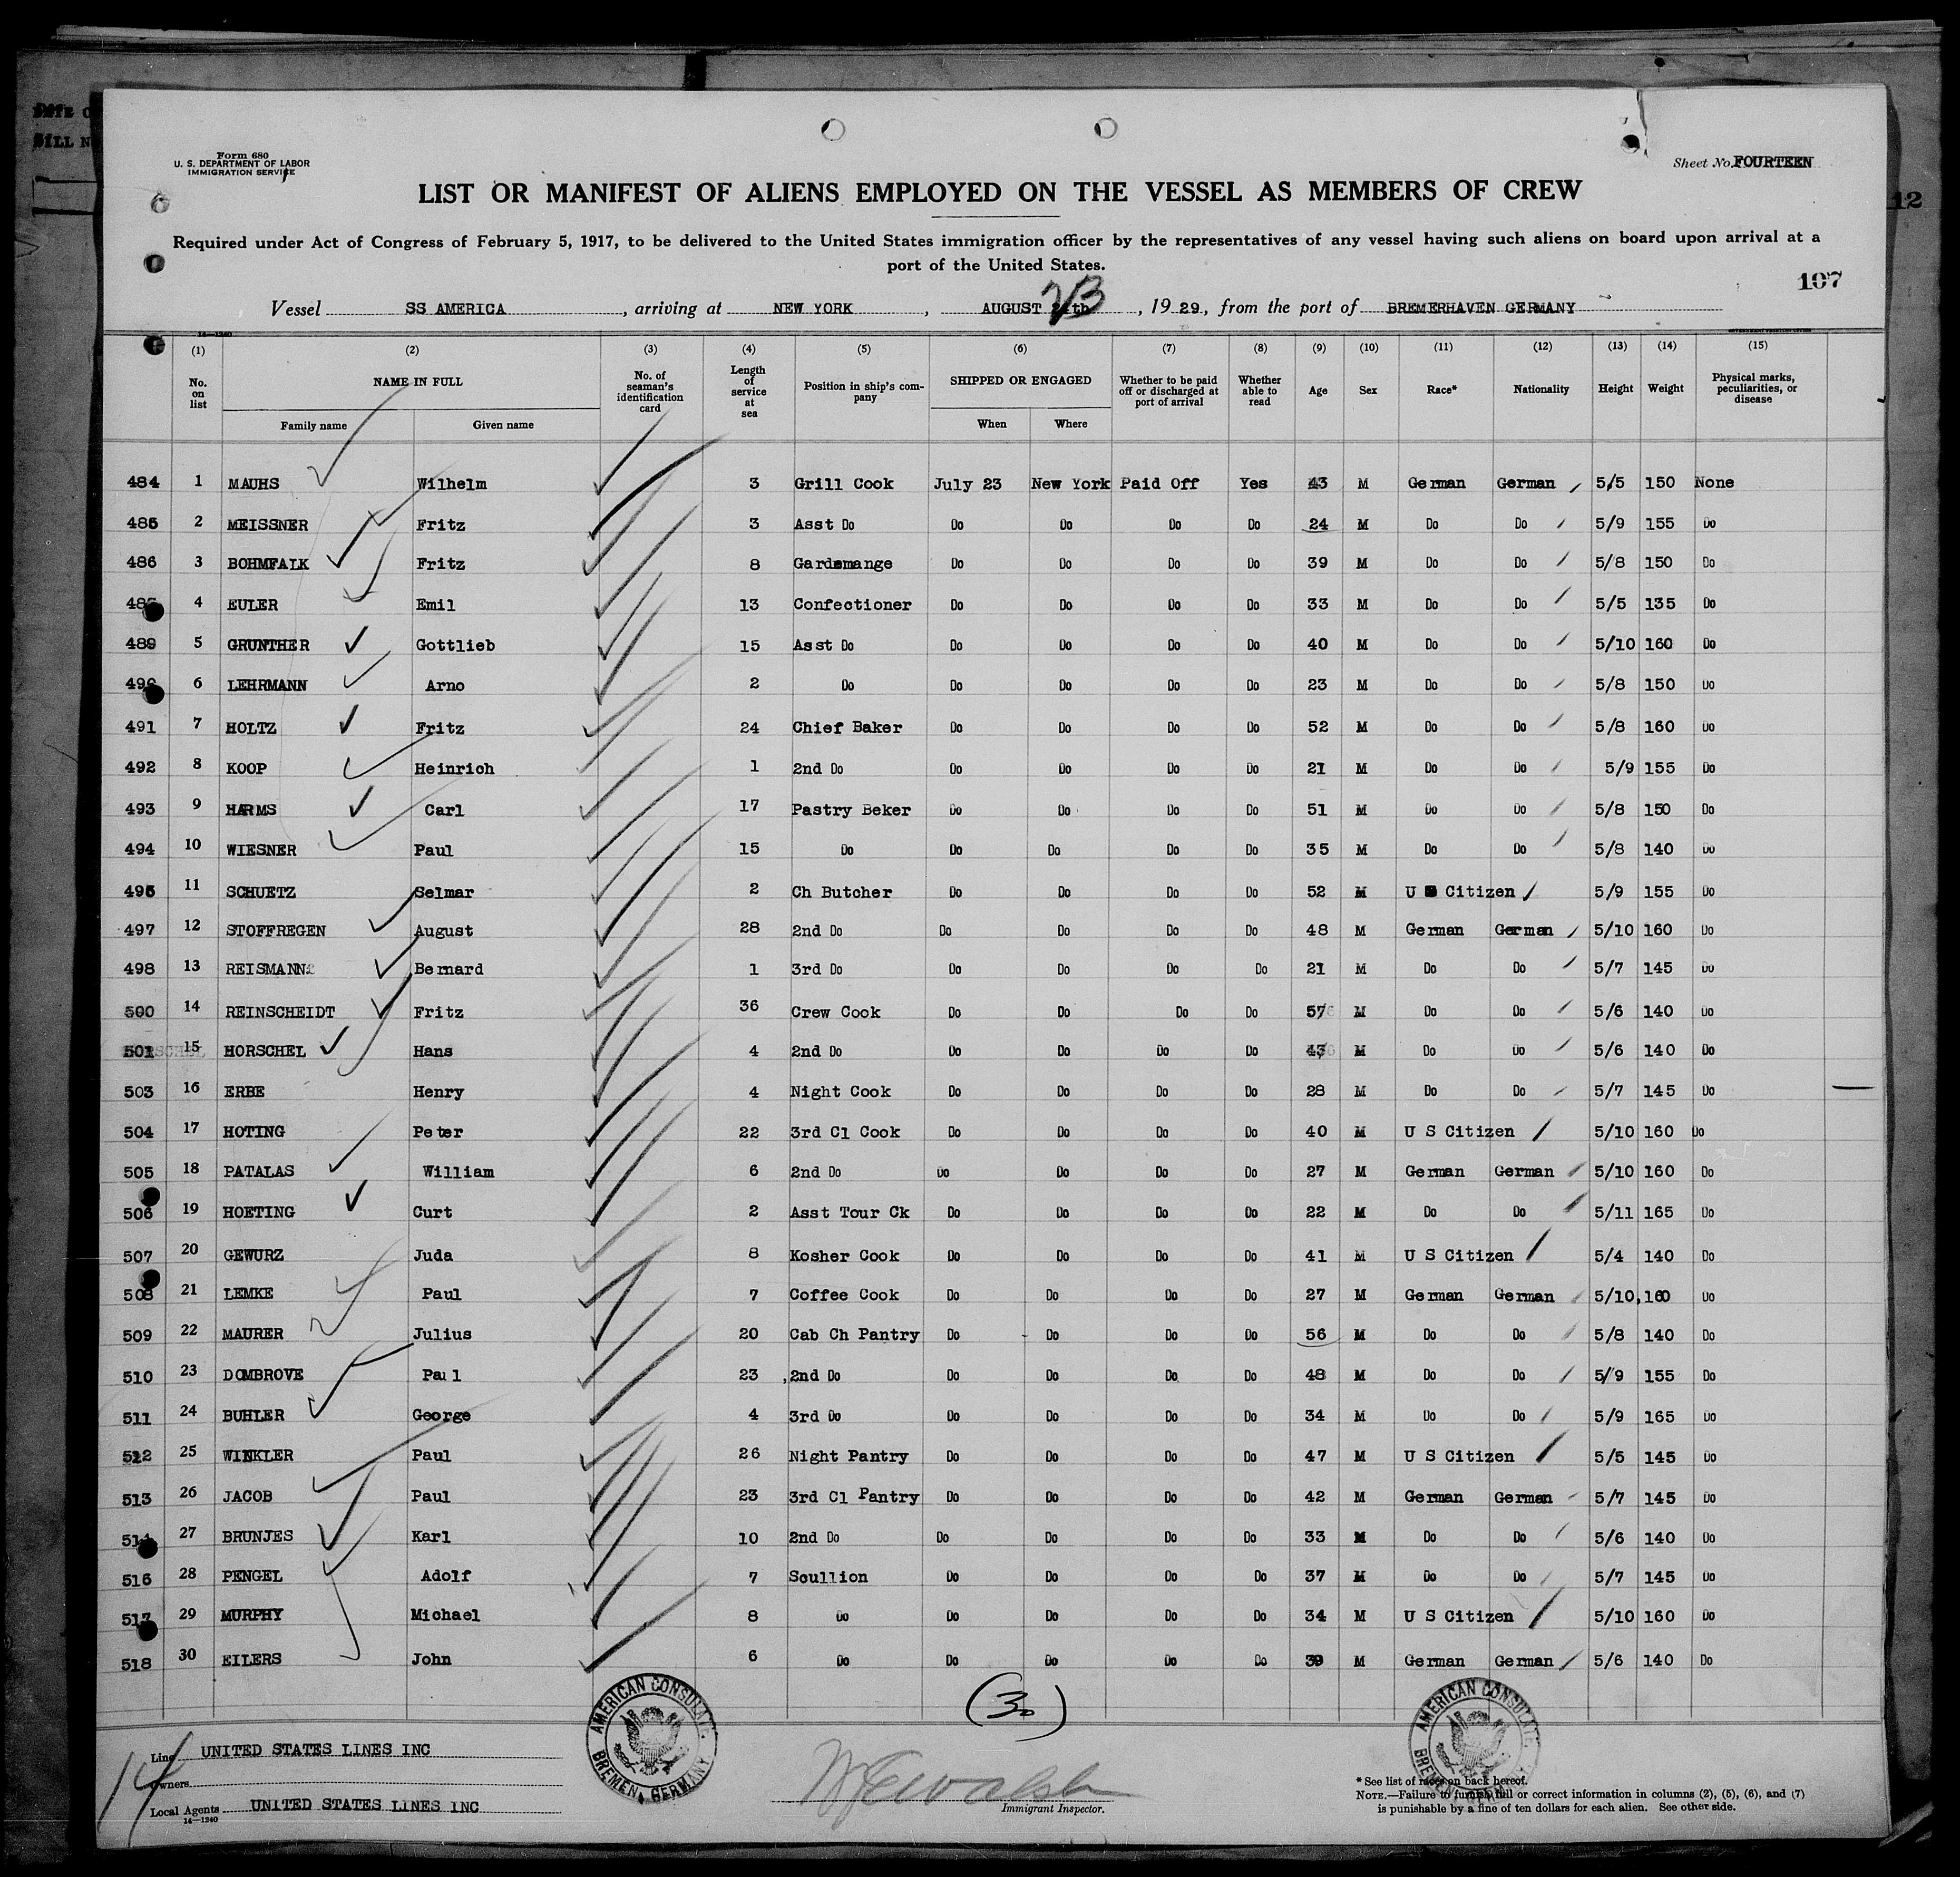 Form 680
U. S. DEPARTMENT OF LABOR
IMMIGRATION SERVICE
Sheet No. FOURTEEN
LIST OR MANIFEST OF ALIENS EMPLOYED ON THE VESSEL AS MEMBERS OF CREW
12
Required under Act of Congress of February 5, 1917, to be delivered to the United States immigration officer by the representatives of any vessel having such aliens on board upon arrival at a
port of the United States.
107
Vessel SS AMERICA, arriving at NEW YORK, AUGUST 23, 1929, from the port of BREMERHAVEN GERMANY
14—1240
(1) (2) (3) (4) (5) (6) (7) (8) (9) (10) (11) (12) (13) (14) (15)
No. on list NAME IN FULL Family name Given name No. of seaman's identification card Length of service at sea Position in ship's company SHIPPED OR ENGAGED When Where Whether to be paid off or discharged at port of arrival Whether able to read Age Sex Race* Nationality Height Weight Physical marks, peculiarities, or disease
484 1 MAUHS Wilhelm 3 Grill Cook July 23 New York Paid Off Yes 43 M German German 5/5 150 None
485 2 MEISSNER Fritz 3 Asst Do Do Do Do Do 24 M Do Do 5/9 155 Do
486 3 BOHMFALK Fritz 8 Gardemange Do Do Do Do 39 M Do Do 5/8 150 Do
4 EULER Emil 13 Confectioner Do Do Do Do 33 M Do Do 5/5 135 Do
489 5 GRUNTHER Gottlieb 15 Asst Do Do Do Do Do 40 M Do Do 5/10 160 Do
6 LEHRMANN Arno 2 Do Do Do Do Do 23 M Do Do 5/8 150 Do
491 7 HOLTZ Fritz 24 Chief Baker Do Do Do Do 52 M Do Do 5/8 160 Do
492 8 KOOP Heinrich 1 2nd Do Do Do Do Do 21 M Do Do 5/9 155 Do
493 9 HARMS Carl 17 Pastry Beker Do Do Do Do 51 M Do Do 5/8 150 Do
494 10 WIESNER Paul 15 Do Do Do Do Do 35 M Do Do 5/8 140 Do
11 SCHUETZ Selmar 2 Ch Butcher Do Do Do Do 52 M U S Citizen 5/9 155 Do
497 12 STOFFREGEN August 28 2nd Do Do Do Do Do 48 M German German 5/10 160 Do
498 13 REISMANN Bernard 1 3rd Do Do Do Do Do 21 M Do Do 5/7 145 Do
500 14 REINSCHEIDT Fritz 36 Crew Cook Do Do Do Do 57 M Do Do 5/6 140 Do
501 15 HORSCHEL Hans 4 2nd Do Do Do Do Do 43 M Do Do 5/6 140 Do
503 16 ERBE Henry 4 Night Cook Do Do Do Do 28 M Do Do 5/7 145 Do
504 17 HOTING Peter 22 3rd Cl Cook Do Do Do Do 40 M U S Citizen 5/10 160 Do
505 18 PATALAS William 6 2nd Do Do Do Do Do 27 M German German 5/10 160 Do
506 19 HOETING Curt 2 Asst Tour Ck Do Do Do Do 22 M Do Do 5/11 165 Do
507 20 GEWURZ Juda 8 Kosher Cook Do Do Do Do 41 M U S Citizen 5/4 140 Do
508 21 LEMKE Paul 7 Coffee Cook Do Do Do Do 27 M German German 5/10 160 Do
509 22 MAURER Julius 20 Cab Ch Pantry Do Do Do Do 56 M Do Do 5/8 140 Do
510 23 DOMBROVE Paul 23 2nd Do Do Do Do Do 48 M Do Do 5/9 155 Do
511 24 BUHLER George 4 3rd Do Do Do Do Do 34 M Do Do 5/9 165 Do
512 25 WINKLER Paul 26 Night Pantry Do Do Do Do 47 M U S Citizen 5/5 145 Do
513 26 JACOB Paul 23 3rd Cl Pantry Do Do Do Do 42 M German German 5/7 145 Do
27 BRUNJES Karl 10 2nd Do Do Do Do Do 33 M Do Do 5/6 140 Do
516 28 PENGEL Adolf 7 Scullion Do Do Do Do 37 M Do Do 5/7 145 Do
517 29 MURPHY Michael 8 Do Do Do Do Do 34 M U S Citizen 5/10 160 Do
518 30 EILERS John 6 Do Do Do Do Do 39 M German German 5/6 140 Do
(30)
AMERICAN CONSULATE. BREMEN, GERMANY
AMERICAN CONSULATE. BREMEN, GERMANY
14
Line UNITED STATES LINES INC
Owners
Local Agents UNITED STATES LINES INC
14—1240
Immigrant Inspector.
* See list of races on back hereof.
NOTE.—Failure to furnish full or correct information in columns (2), (5), (6), and (7)
is punishable by a fine of ten dollars for each alien. See other side.